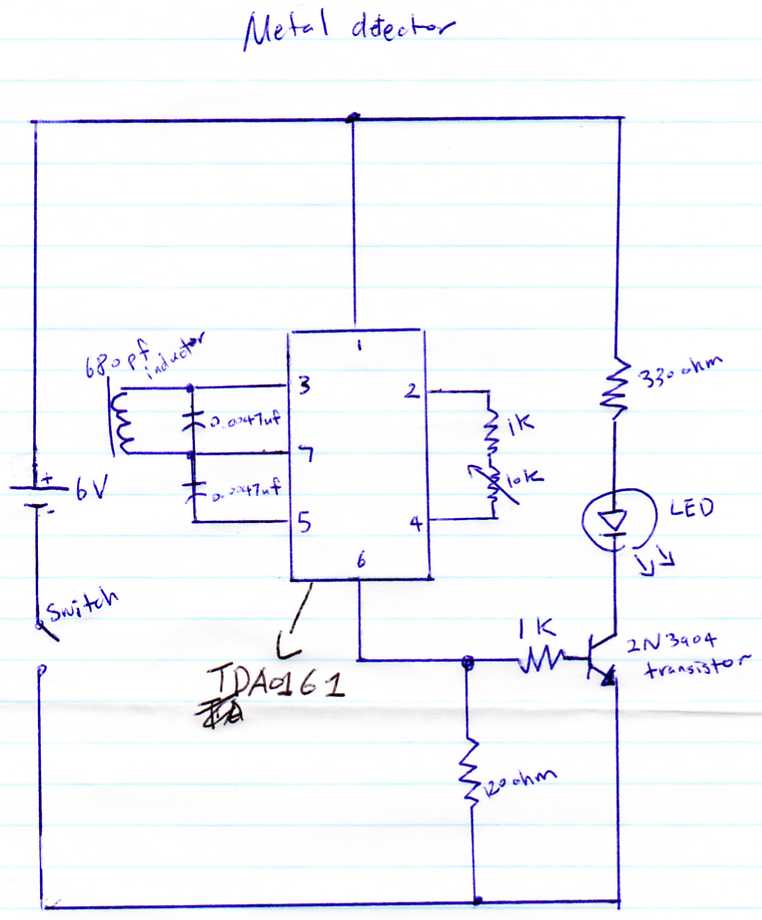 Metal detector
1
680pf
inductor
3
2
330 ohm
0.0047uf
1K
7
10K
+
6V
0.0047uf
-
5
4
LED
6
Switch
1K
2N3904
transistor
TDA0161
120 ohm